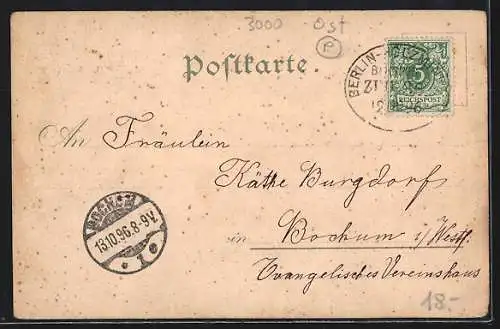 3000 Ost
P
Postkarte
BERLIN-
5
REICHSPOST
An Fräulein
Käthe Burgdorf
in Bochum i/Westf.
Evangelisches Vereinshaus
BOCHUM
13.10.96.8-9V.
1
18.-